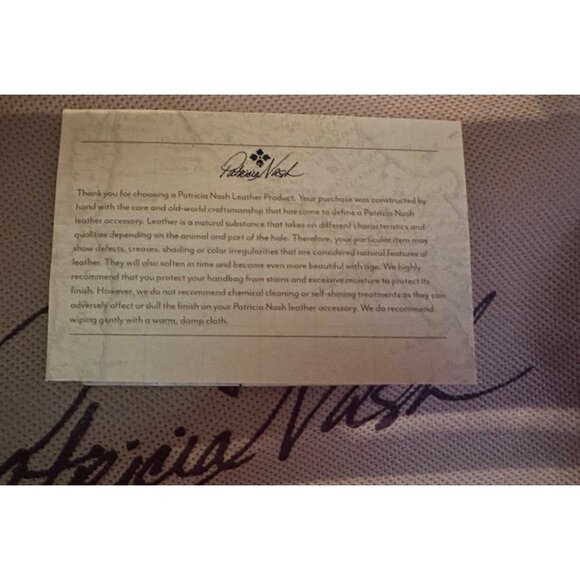 Patricia Nash
Thank you for choosing a Patricia Nash Leather Product. Your purchase was constructed by
hand with the care and old-world craftsmanship that has come to define a Patricia Nash
leather accessory. Leather is a natural substance that takes on different characteristics and
qualities depending on the animal and part of the hide. Therefore, your particular item may
show defects, creases, shading or color irregularities that are considered natural features of
leather. They will also soften in time and become even more beautiful with age. We highly
recommend that you protect your handbag from stains and excessive moisture to protect its
finish. However, we do not recommend chemical cleaning or self-shining treatments as they can
adversely affect or dull the finish on your Patricia Nash leather accessory. We do recommend
wiping gently with a warm, damp cloth.
Patricia Nash